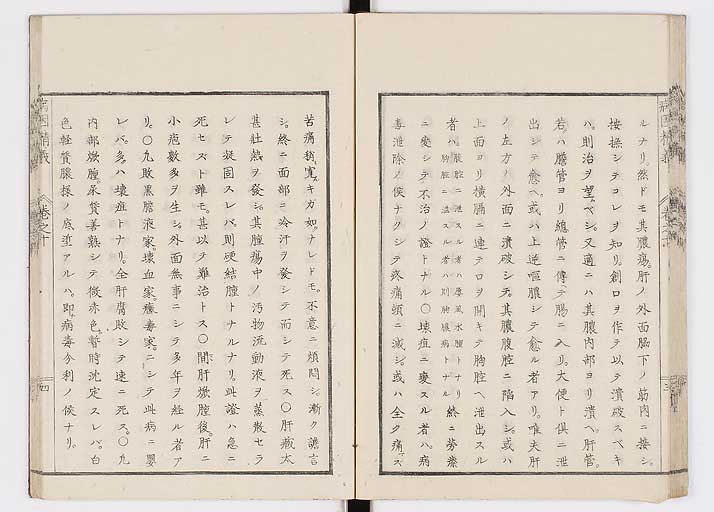 ルナリ。然ドモ其膿瘍。肝ノ外面脇下ノ筋肉ニ接シ。
按撫シテコレヲ知リ。創口ヲ作テ以テ潰破スベキ
ハ。則治ヲ望ベシ。又適ニハ其膿内部ヨリ潰ヘ。肝管。
若ハ膽管ヨリ總管ニ傳テ腸ニ入リ。大便ト俱ニ泄
出シテ愈ヘ。或ハ上逆嘔膿シテ愈ル者アリ。唯夫肝
ノ左方ノ外面ニ潰破シテ。其膿腹腔ニ陥入シ。或ハ
上面ヨリ横膈ニ連テ口ヲ開キテ胸腔ヘ泄出スル
者ハ。腹腔ニ泄スル者ハ 水腫トナリ 胸腔ニ溢スル者ハ則肺膿病トナル 終ニ労瘵
ニ変シテ不治ノ證トナル〇壊疽ニ変スル者ハ病
毒泄除ノ候ナクシテ疼痛頓ニ減シ。或ハ全ク痛ズ
苦痛稍寛キカ如。ナレドモ。不意ニ煩悶シ。漸ク譫言
シ。終ニ面部ニ冷汗ヲ發シテ而シテ死ス〇肝臓太
甚壮熱ヲ發シ。其腫瘍中ノ汚物流動液ヲ蒸散セラ
レテ凝固スレバ。則硬結腫トナルナリ。此證ハ急ニ
死セズト雖モ。甚以テ難治トス〇間肝焮腫後。肝ニ
小疱數多ヲ生シ。外面無事ニシテ多年ヲ経ル者ア
リ。〇凡敗黒膽液家。壊血家。黴毒家。ニシテ此病ニ嬰
レバ。多ハ壊疽トナリ。全肝腐敗シテ速ニ死ス。〇凡
内部焮腫。尿質善熟シテ微赤色。暫時沈定スレバ。白
色軽質膿様ノ底渣アルハ。即病毒分利ノ候ナリ。
病因精義
卷之十
四